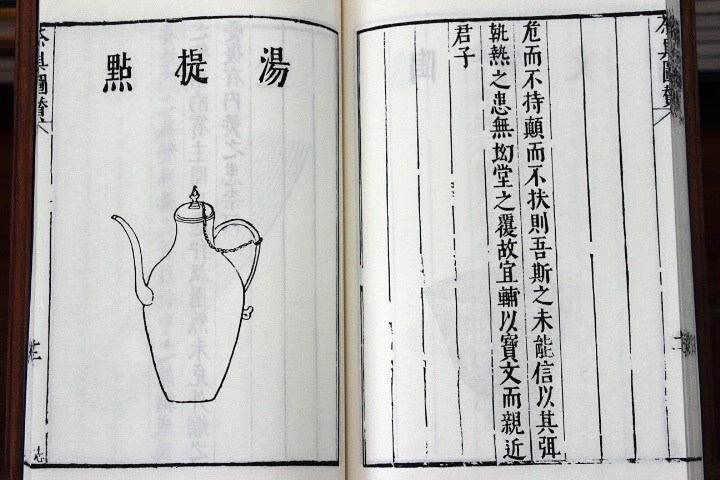 茶具圖贊
危而不持顛而不扶則吾斯之未能信以其弭
執熱之患無坳堂之覆故宜輔以寶文而親近
君子
湯提點
茶具圖贊